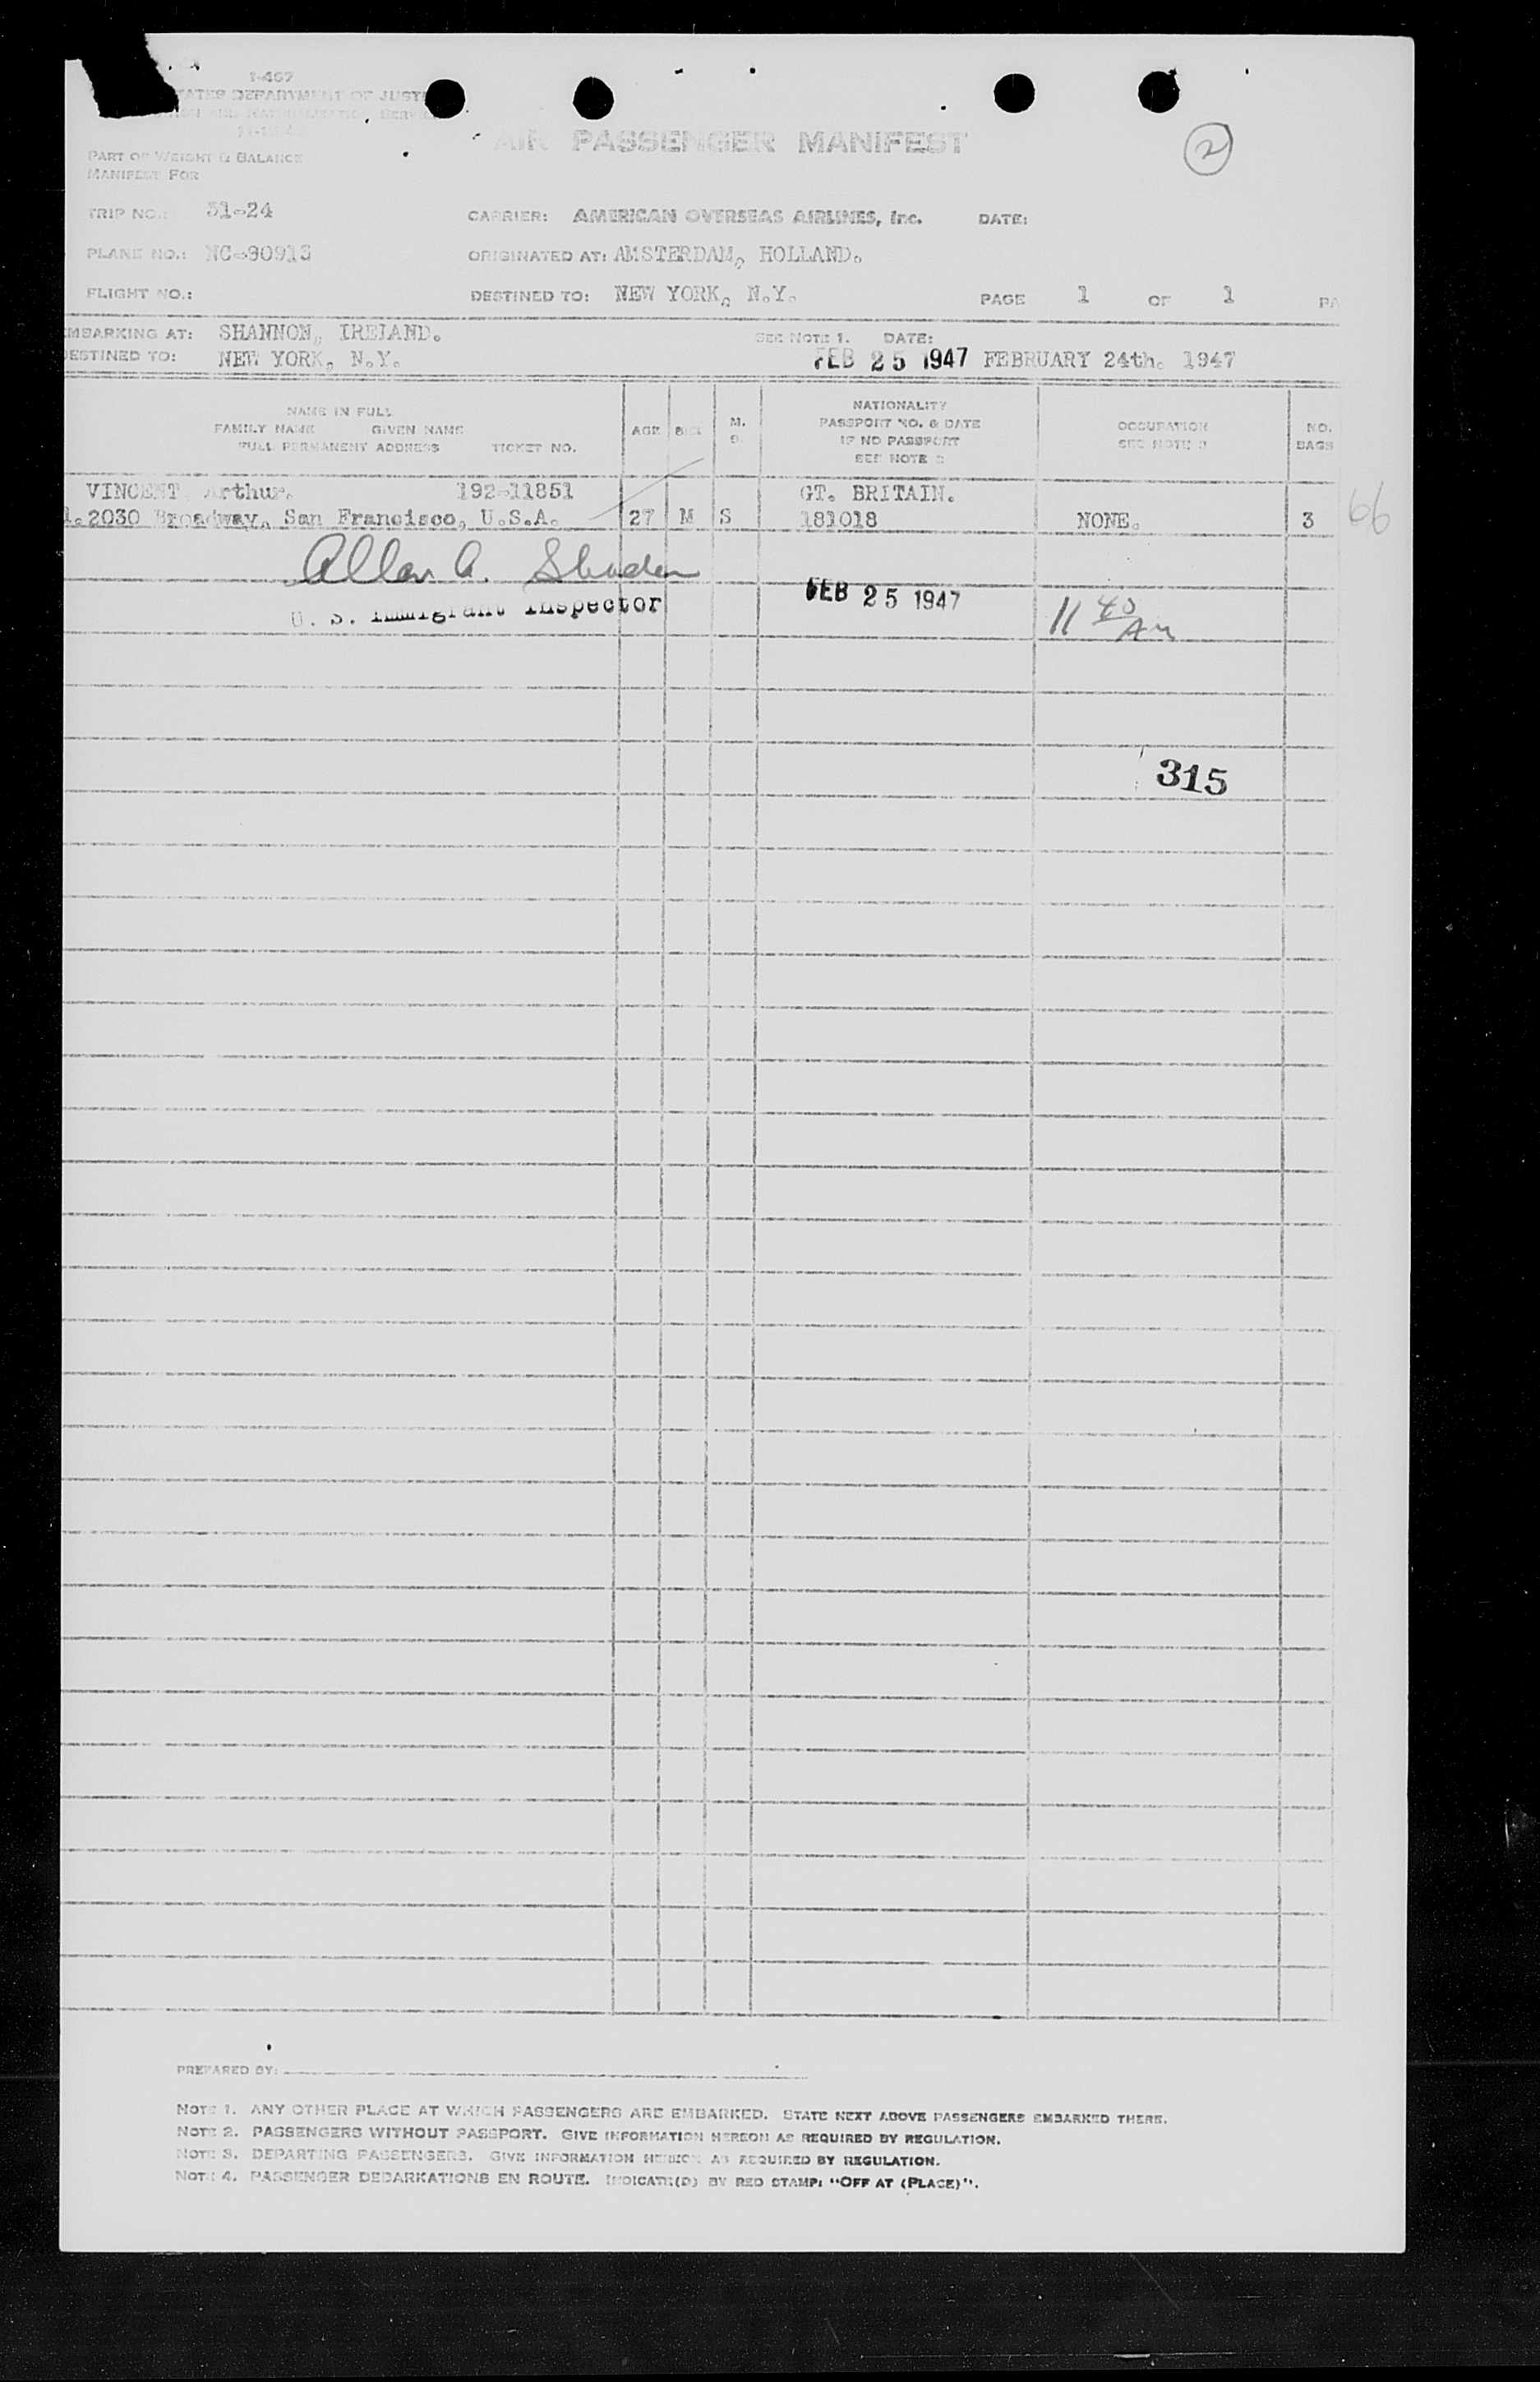 I-467
STATES DEPARTMENT OF JUSTI
PART OF WEIGHT & BALANCE
MANIFEST FOR
AIR PASSENGER MANIFEST
2
TRIP NO.: 31-24 CARRIER: AMERICAN OVERSEAS AIRLINES, Inc. DATE:
PLANE NO.: NC-90913 ORIGINATED AT: AMSTERDAM, HOLLAND.
FLIGHT NO.: DESTINED TO: NEW YORK, N.Y. PAGE 1 OF 1 PA
EMBARKING AT: SHANNON, IRELAND. SEE NOTE 1. DATE:
DESTINED TO: NEW YORK, N.Y. FEB 25 1947 FEBRUARY 24th. 1947
NAME IN FULL
FAMILY NAME GIVEN NAME
FULL PERMANENT ADDRESS TICKET NO.
AGE SEX M. S.
NATIONALITY
PASSPORT NO. & DATE
IF NO PASSPORT
SEE NOTE 2
OCCUPATION
SEE NOTE 3
NO.
BAGS
VINCENT, Arthur. 192-11851 GT. BRITAIN.
1. 2030 Broadway, San Francisco, U.S.A. 27 M S 181018 NONE. 3 66
Allan A.
U. S. Immigrant Inspector FEB 25 1947 11 40 AM
315
PREPARED BY:
NOTE 1. ANY OTHER PLACE AT WHICH PASSENGERS ARE EMBARKED. STATE NEXT ABOVE PASSENGERS EMBARKED THERE.
NOTE 2. PASSENGERS WITHOUT PASSPORT. GIVE INFORMATION HEREON AS REQUIRED BY REGULATION.
NOTE 3. DEPARTING PASSENGERS. GIVE INFORMATION HEREON AS REQUIRED BY REGULATION.
NOTE 4. PASSENGER DEBARKATIONS EN ROUTE. INDICATE(D) BY RED STAMP: "OFF AT (PLACE)".